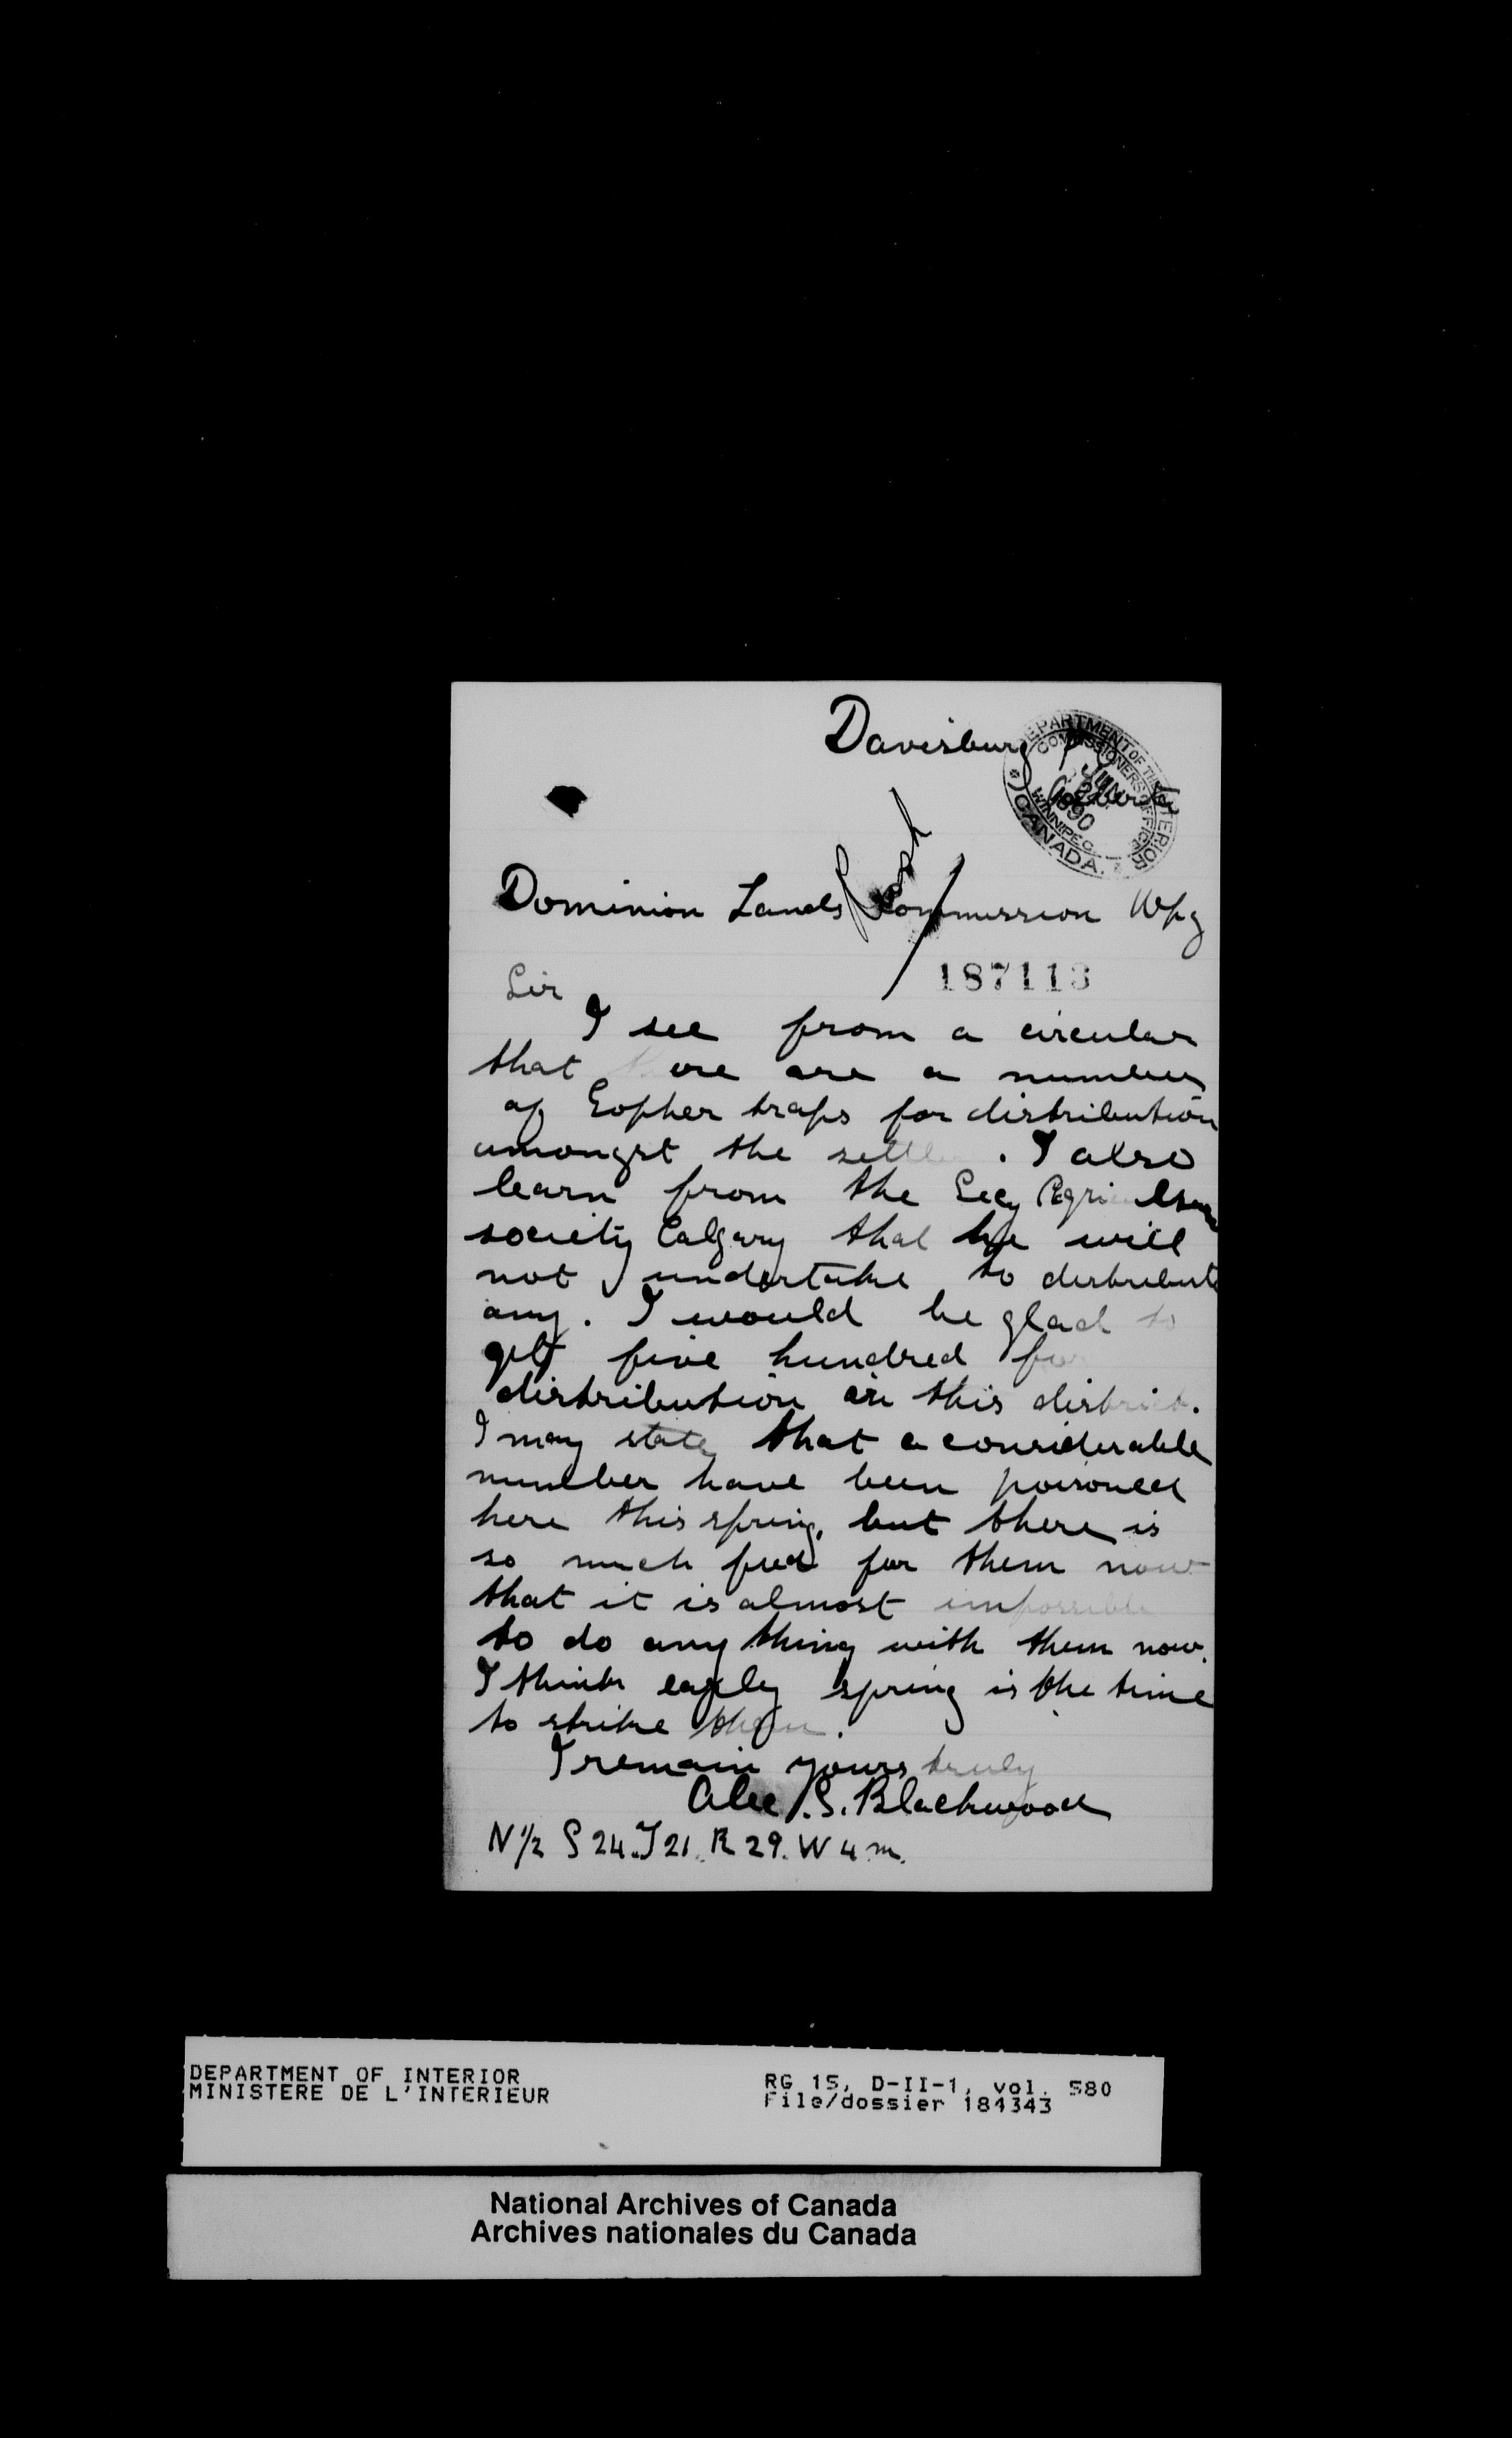 Davisburg P O
Alberta
DEPARTMENT OF THE INTERIOR
COMMISSIONERS OFFICE
JUN
1890
WINNIPEG
CANADA.
Dominion Lands Commission Wpg
187113
Sir
I see from a circular
that there are a number
of Gopher traps for distribution
amongst the settlers. I also
learn from the Secy Agriculture
society Calgary that he will
not undertake to distribute
any. I would be glad to
get five hundred for
distribution in this district.
I may state that a considerable
number have been poisoned
here this spring, but there is
so much feed for them now
that it is almost impossible
to do any thing with them now.
I think early spring is the time
to strike them.
I remain yours truly
Alec. S. Blackwood
N 1/2 S 24. T 21. R 29. W 4 m.
DEPARTMENT OF INTERIOR
MINISTERE DE L'INTERIEUR
RG 15, D-II-1, vol. 580
File/dossier 184343
National Archives of Canada
Archives nationales du Canada